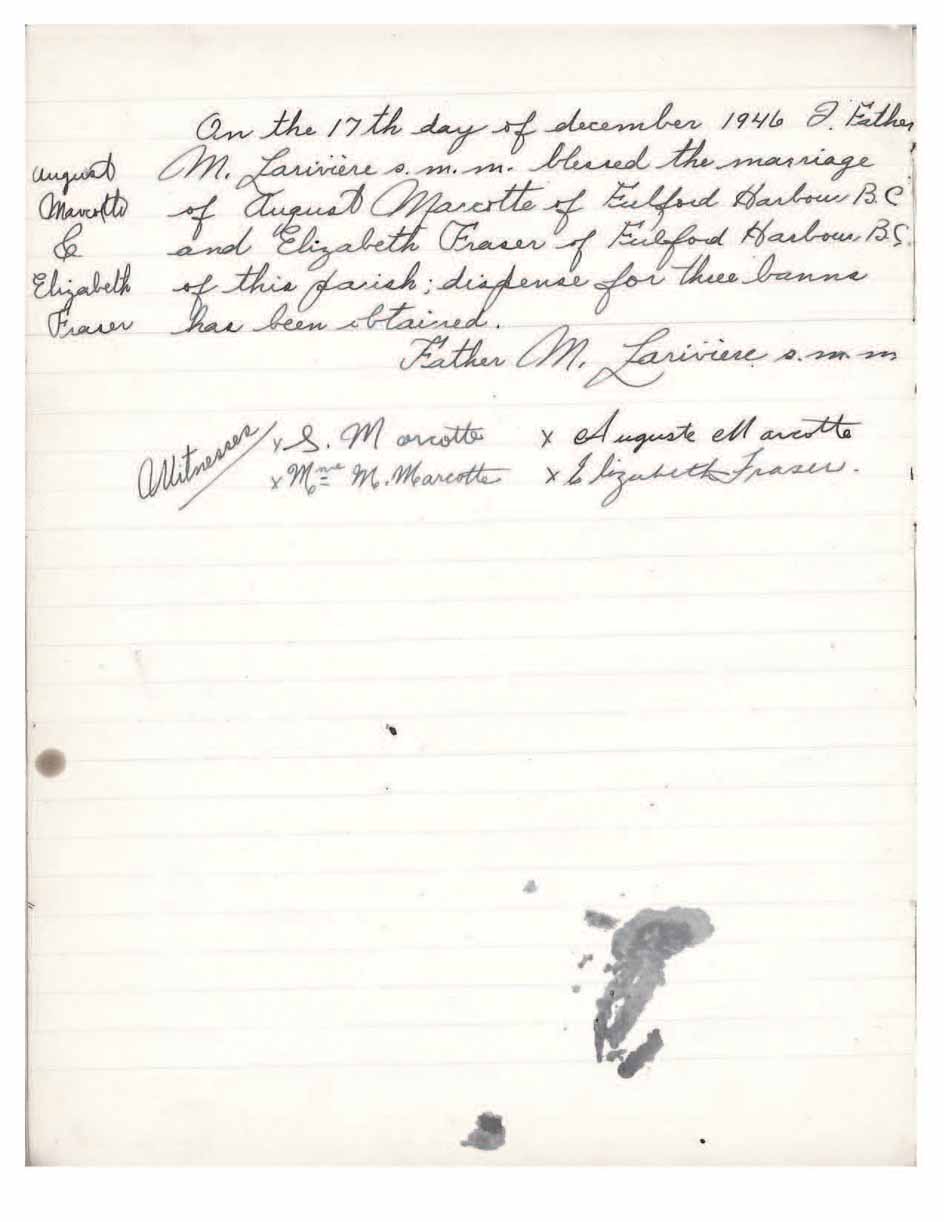 On the 17th day of december 1946 I. Father
M. Larivière s.m.m. blessed the marriage
of August Marcotte of Fulford Harbour B.C
and Elizabeth Fraser of Fulford Harbour B.C.
of this parish; dispense for three banns
has been obtained.
Father M. Lariviere s.m.m
August
Marcotte
&
Elizabeth
Fraser
Witnesses
x S. Marcotte x Auguste Marcotte
x Mme M. Marcotte x Elizabeth Fraser.